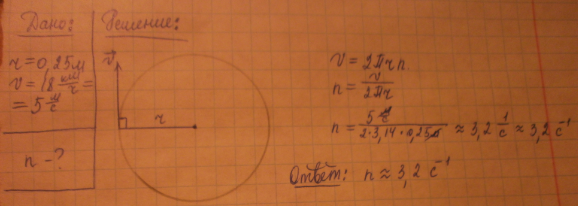 Дано:
r = 0,25м
v = 18 км/ч =
= 5 м/с
n - ?
Решение:
v⃗
r
v = 2πrn
n = v/2πr
n = 5 м/с / 2·3,14·0,25м ≈ 3,2 1/с ≈ 3,2 с⁻¹
Ответ: n ≈ 3,2 с⁻¹